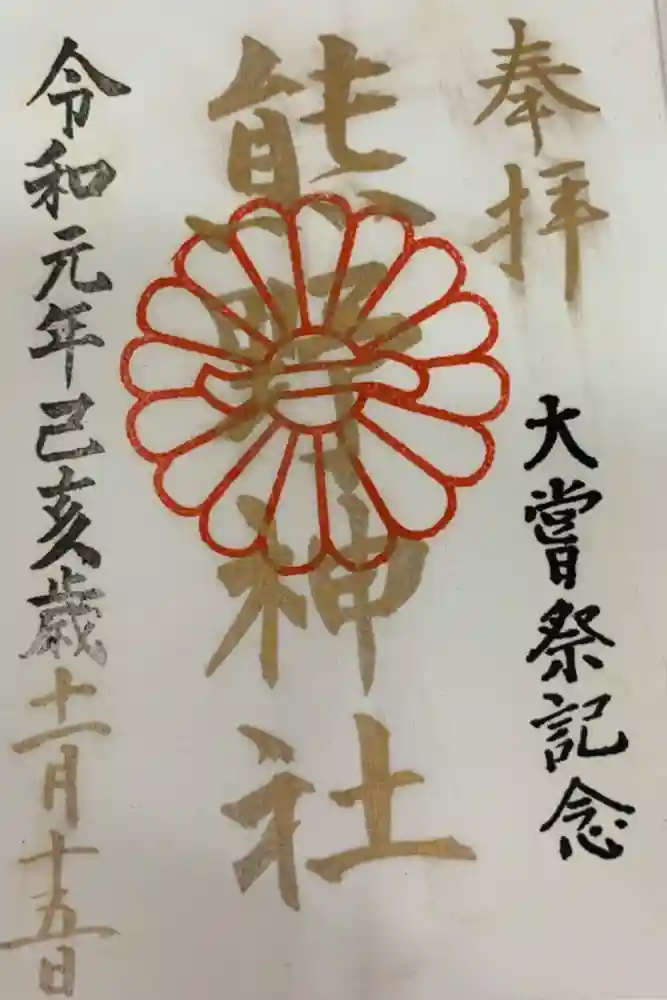 奉拝
大嘗祭記念
熊野神社
令和元年己亥歳十一月十五日